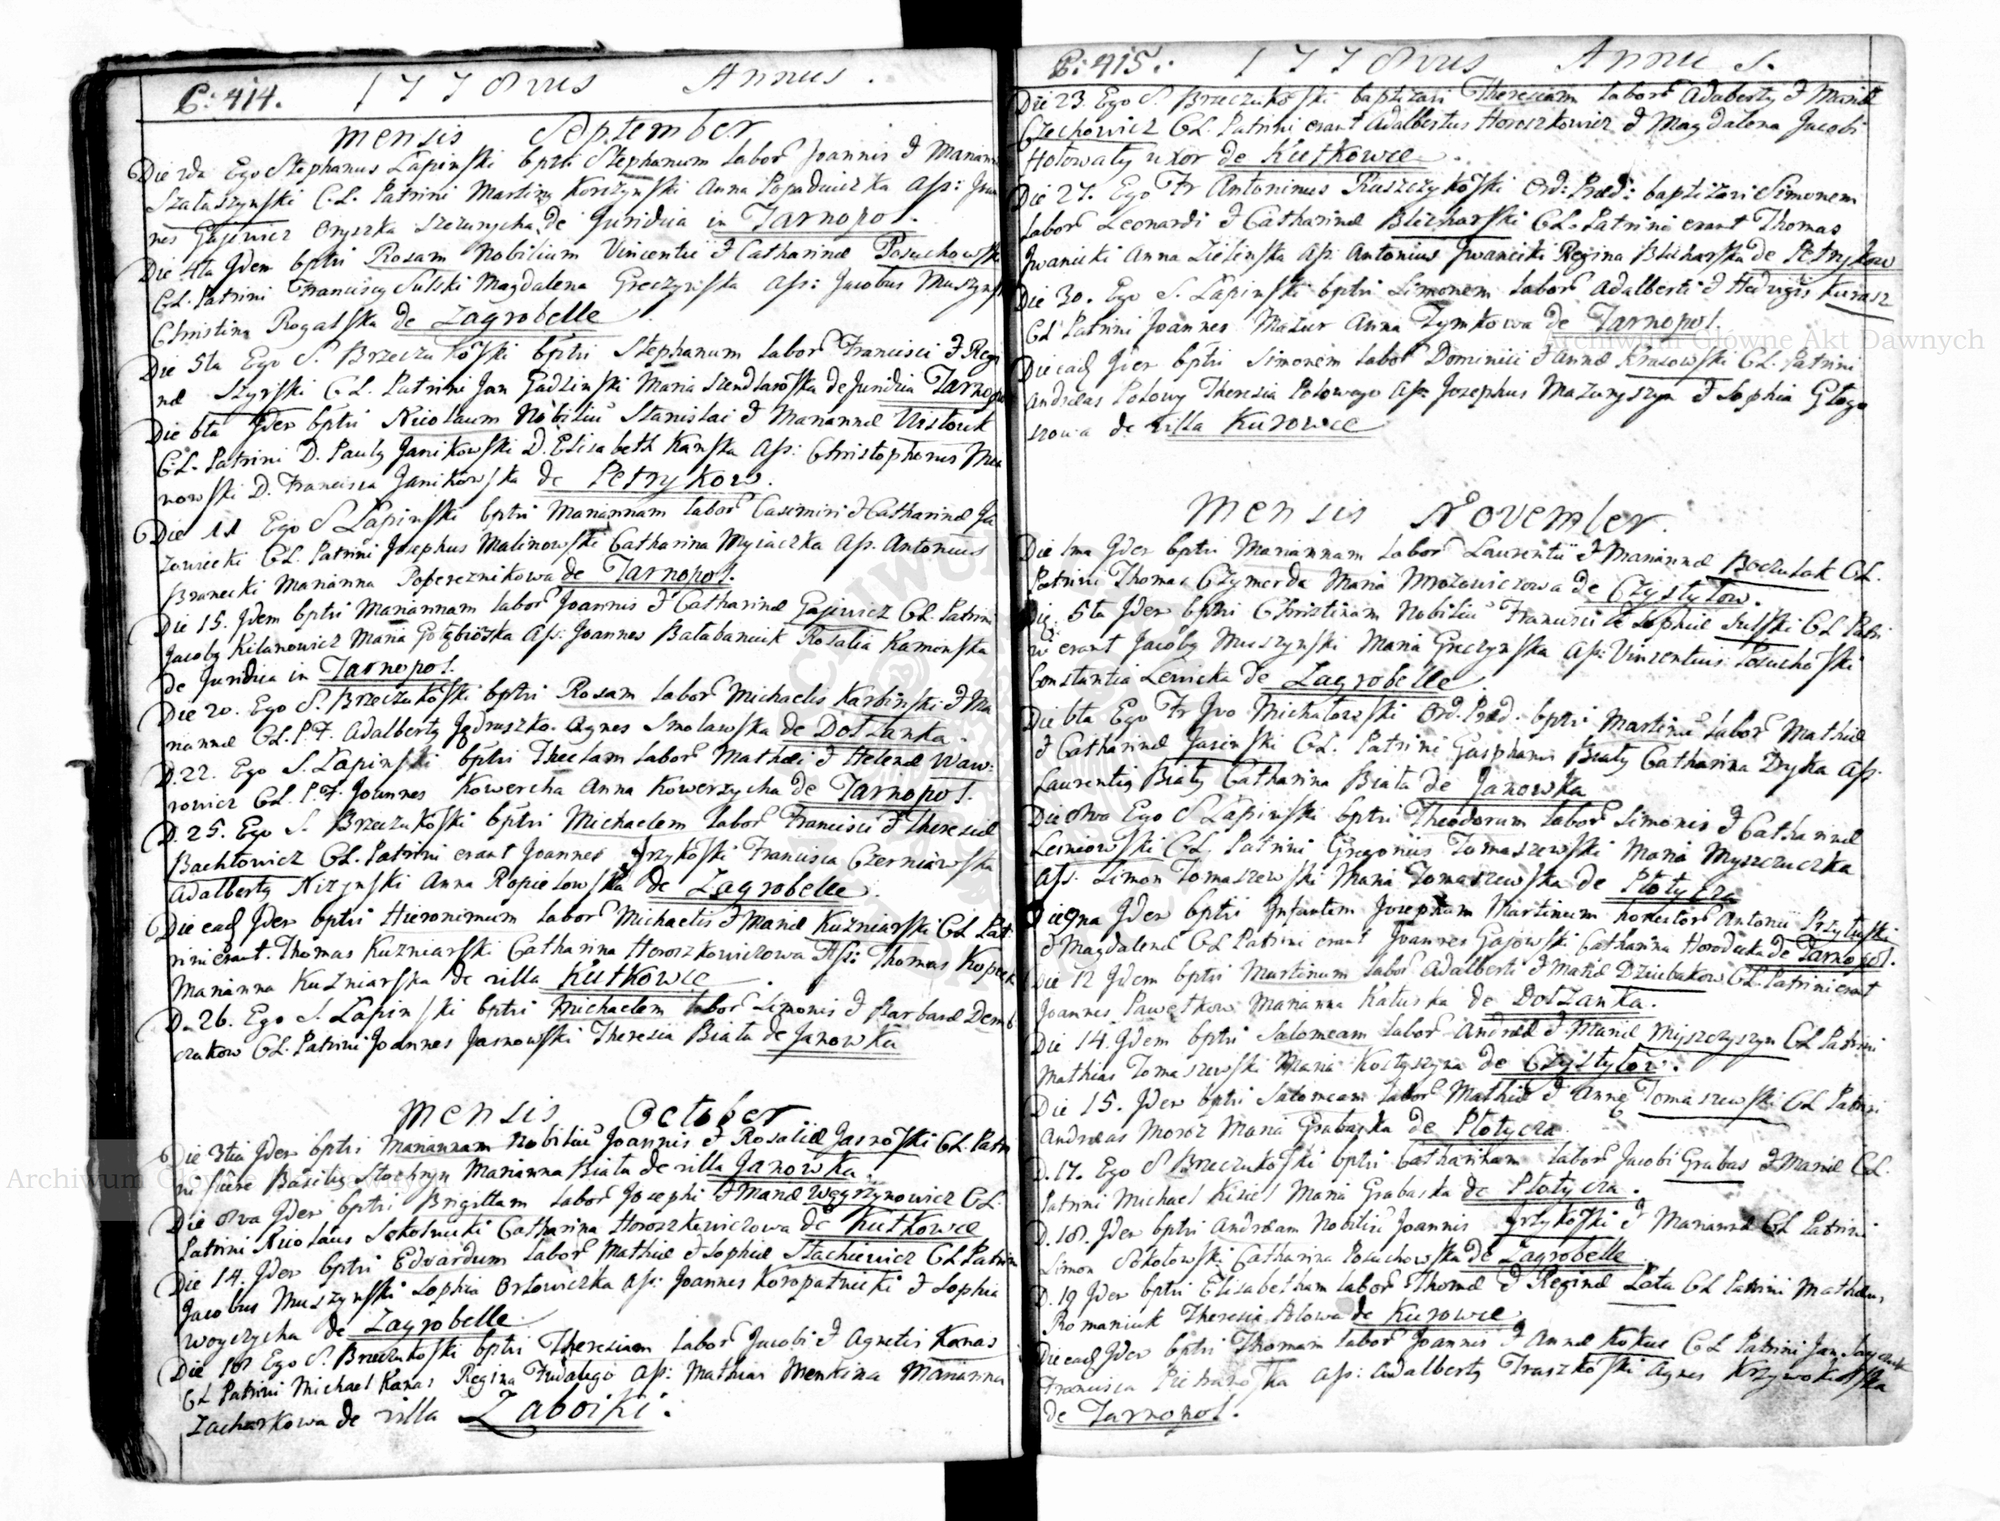 P: 414. 1778vus Annus.
Mensis September
Die 2da Ego Stephanus Łapinski bptzi Stephanum Labor Joannis & Mariann
Szałaszynski C.L. Patrini Martiny Korczynski Anna Popadniczka Ass: Joan
nes Gajewicz Oryszka de Juridica in Tarnopol.
Die 4ta Idem bptzi Rosam Nobilium Vincentii & Catharinæ Posuchowski
C.L. Patrini Francisy Sulski Magdalena Greczynska Ass: Jacobus Muszynski
Christina Rogalska de Zagrobelle
Die 5ta Ego S. Brzeczukoski bptzi Stephanum Labor Francisci & Regi
næ Szyrski C.L. Patrini Jan Gadzinski Maria de Juridica Tarnopo
Die 6ta Idem bptzi Nicolaum Nobiliu Stanislai & Mariannæ
C.L. Patrini D. Pauly Janikowski D. Elisabeth Kanska Ass: Christophorus
nowski D. Francisca Janikowska de Petrykow.
Die 11 Ego S Łapinski bptzi Mariannam Labor Casimiri & Catharinæ Ja
zowiecki C.L. Patrini Josephus Malinowski Catharina Myiaczka Ass. Antonius
Branecki Marianna Pobereznikowa de Tarnopol.
Die 15. Idem bptzi Mariannam Labor Joannis & Catharinæ Gajewicz C.L. Patrini
Jacoby Kilanowicz Maria Gołąbioska Ass: Joannes Bałabaniuk Rosalia Kamonska
de Juridica in Tarnopol.
Die 20. Ego S. Brzeczukoski bptzi Rosam Labor Michaelis Karbinski & Ma
riannæ C.L. P.F. Adalberty Jędruszko. Agnes Smolawska de Dołzanka.
D. 22. Ego S. Łapinski bptzi Theclam Labor Mathæi & Helenæ Waw:
rowicz C.L. P.F. Joannes Kowercha Anna Kowerzycha de Tarnopol.
D. 25. Ego S. Brzeczukoski bptzi Michaelem Labor Francisci & Theresiæ
Bachłowicz C.L. Patrini erant Joannes Jrzykoski Francisca Czerniawska
Adalberty Nizynski Anna Ropielowska de Zagrobelle.
Die ead Idem bptzi Hieronimum Labor Michaelis & Mariæ Kuzniarski C.L. Pat:
rini erant. Thomas Kuzniarski Catharina Horoszkowiczowa Ass: Thomas Kopeck
Marianna Kuzniarska de villa Kutkowce
D. 26. Ego S. Łapinski bptzi Michaelem Labor Simonis & Barbaræ Demb
czukow C.L. Patrini Joannes Jasnowski Theresia Biała de Janowka
Mensis October
Die 3tia Idem bptzi Mariannam Nobiliu Joannis & Rosaliæ Jasnoski C.L. Patri
ni fuere Basily Marianna Biała de villa Janowka
Die 8va Idem bptzi Brigittam Labor Josephi & Mariæ Węgrzynowicz C.L.
Patrini Nicolaus Sokolnicki Catharina Horoszkewiczowa de Kutkowce
Die 14. Idem bptzi Edvardum Labor Mathiæ & Sophiæ Stachiewicz C.L. Patrini
Jacobus Muszynski Sophia Orłowiczka Ass: Joannes Koropatnicki & Sophia
Woyczycha de Zagrobelle.
Die 18 Ego S. Brzeczukoski bptzi Theresiam Labor Jacobi & Agnetis Kanas
C.L. Patrini Michael Kanas Regina Fudalego Ass: Mathias Menkina Marianna
Zacharkowa de villa Zaboiki.
P: 415. 1778vus Annus.
Die 23. Ego S. Brzeczukoski baptizavi Theresiam Labor Adalberty & Mariæ
Czechowicz C.L. Patrini erant Adalbertus Horoszkowicz & Magdalena Jacobi
Hołowaty uxor de Kutkowce.
Die 27. Ego Fr Antoninus Ruszczykoski Ord: Præd: baptizavi Simonem
Labor Leonardi & Catharinæ Blicharski C.L. Patrini erant Thomas
Jwanicki Anna Zielinska Ass: Antonius Jwanicki Regina Blicharska de Petrykow
Die 30. Ego S. Łapinski bptzi Simonem Labor Adalberti & Hedvigis Kurasz
C.L. Patrini Joannes Mazur Anna Tymkowa de Tarnopol.
Die ead Idem bptzi Simonem Labor Dominici & Annæ Krasowski C.L. Patrini
Andreas Połowy Theresia Połowego Ass: Josephus Mazuryszyn & Sophia Głogo
szowa de villa Kurowce
Mensis November.
Die 1ma Idem bptzi Mariannam Labor Laurentii & Mariannæ Boczulak C.L.
Patrini Thomas Czymerda Maria Mrozowiczowa de Czystyłow.
Die. 5ta Idem bptzi Christinam Nobiliu Francisci & Sophiæ Sulski C.L. Patri
ni erant Jacoby Muszynski Maria Greczynska Ass: Vincentius Posuchoski
Constantia Lewicka de Zagrobelle
Die 6ta Ego Fr Jvo Michałowski Ord. Præd. bptzi Martinu Labor Mathiæ
& Catharinæ Jasinski C.L. Patrini Gasphanus Biały Catharina Dryka Ass.
Laurentis Biały Catharina Biała de Janowka
Die 8va Ego S Łapinski bptzi Theodorum Labor Simonis & Catharinæ
Lesniowski C.L. Patrini Gregorius Tomaszewski Maria Myszczuczka
Ass. Simon Tomaszewski Maria Tomaszewska de Płotycza
Die 9na Idem bptzi Infantem Josephum Martinum honestor Antonii Przyłuski
& Magdalenæ C.L. Patrini erant Joannes Gajowski Catharina Horodecka de Tarnopol.
Die 12 Idem bptzi Martinum Labor Adalberti & Mariæ Dziubakow C.L. Patrini erant
Joannes Pawętkow Marianna Katuska de Dołzanka.
Die 14. Idem bptzi Salomeam Labor Andreæ & Mariæ Myszczyszyn C.L. Patrini
Mathias Tomaszewski Maria Kostyszyna de Czystyłow.
Die 15. Idem bptzi Salomeam Labor Mathiæ & Annę Tomaszewski C.L. Patrini
Andreas Moroz Maria Grabaska de Płotycza
D. 17. Ego S Brzeczukoski bptzi Catharinam Labor Jacobi Grabas & Mariæ C.L.
Patrini Michael Kisiel Maria Grabaska de Płotycza.
D. 18. Idem bptzi Andream Nobiliu Joannis Jrzykoski & Mariannæ C.L. Patrini
Simon Sokołowski Catharina Posuchowska de Zagrobelle
D. 19 Idem bptzi Elisabetham Labor Thomæ & Reginæ Łata C.L. Patrini Mathæus
Romaniuk Theresia de Kurowce.
Die ead Idem bptzi Thomam Labor Joannis & Annæ Kokus C.L. Patrini Jan
Francisca Pietranoska Ass: Adalberty Truszkoski Agnes
de Tarnopol.
Archiwum Główne Akt Dawnych